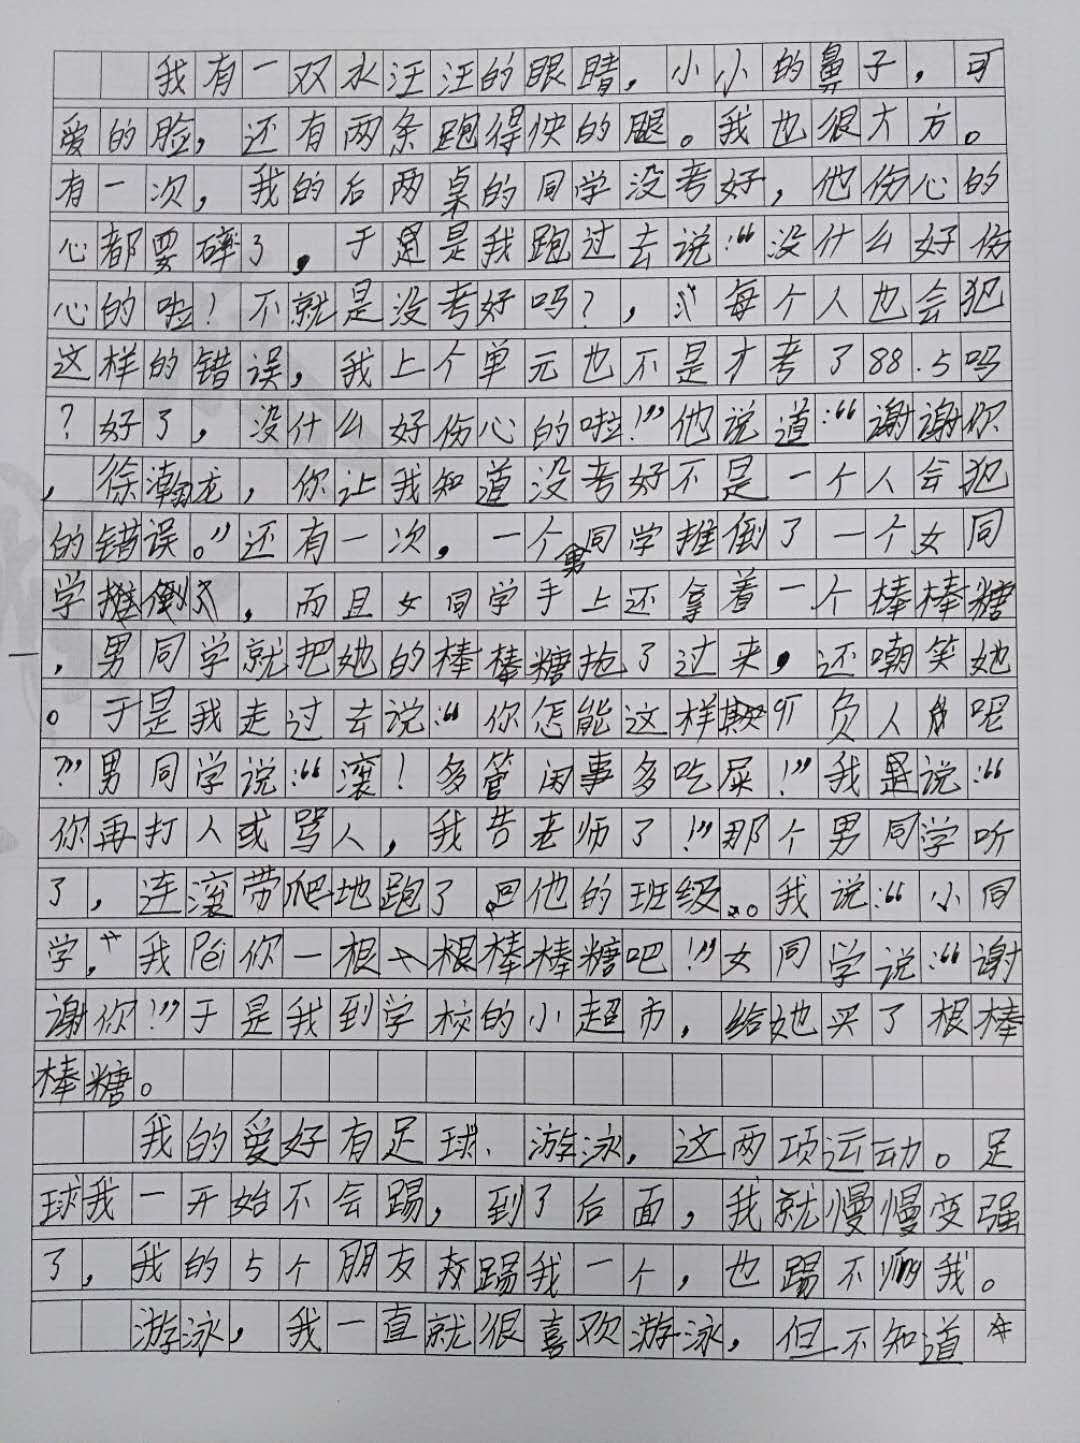 我有一双水汪汪的眼睛，小小的鼻子，可
爱的脸，还有两条跑得快的腿。我也很大方。
有一次，我的后两桌的同学没考好，他伤心的
心都要碎了，于是我跑过去说：“没什么好伤
心的啦！不就是没考好吗？，每个人也会犯
这样的错误，我上个单元也不是才考了88.5吗
？好了，没什么好伤心的啦！”他说道：“谢谢你
，徐瀚龙，你让我知道没考好不是一个人会犯
的错误。”还有一次，一个男同学推倒了一个女同
学，而且女同学手上还拿着一个棒棒糖
，男同学就把她的棒棒糖抢了过来，还嘲笑她
。于是我走过去说：“你怎能这样欺负人呢
？”男同学说：“滚！多管闲事多吃屎！”我说：“
你再打人或骂人，我告老师了！”那个男同学听
了，连滚带爬地跑了回他的班级。我说：“小同
学，我Péi你一根棒棒糖吧！”女同学说：“谢
谢你！”于是我到学校的小超市，给她买了根棒
棒糖。
我的爱好有足球、游泳，这两项运动。足
球我一开始不会踢，到了后面，我就慢慢变强
了，我的5个朋友踢我一个，也踢不yíng我。
游泳，我一直就很喜欢游泳，但不知道